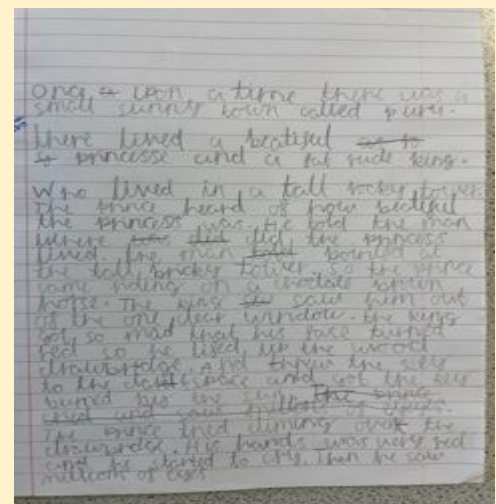 once upon a time there was a
small sunny town called pura.
there lived a beatiful
princesse and a fat rude king.
Who lived in a tall rocky tower.
The prince heard of how beatiful
the princess was. He told the man
where did the princess
lived. The man pointed at
the tall bricky tower. So the prince
came riding on a choclate brown
horse. The king saw him out
of the one clear window. the king
got so mad that his face turned
red so he the wood
drawbridge. And threw the
to the space and got the key
buned by the sun. The prince
tried and saw millions of
The prince tried climing over the
drawbridge. His hands was very red
and he started to cry. Then he saw
millions of